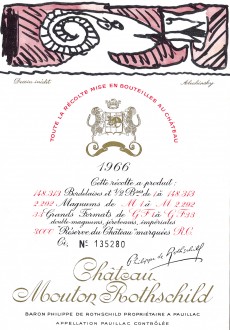 Dessin inédit Alechinsky
TOUTE LA RÉCOLTE MISE EN BOUTEILLES AU CHÂTEAU
1966
Cette récolte a produit:
Bordelaises et 1/2 Bses de 1 à
Magnums de M 1 à M
Grands Formats de G F 1 à G F
double-magnums, jéroboams, impériales
"Réserve du Château" marquées R.C.
Ce, No 135280
Philippe de Rothschild
Château
Mouton Rothschild
BARON PHILIPPE DE ROTHSCHILD PROPRIÉTAIRE A PAUILLAC
APPELLATION PAUILLAC CONTRÔLÉE